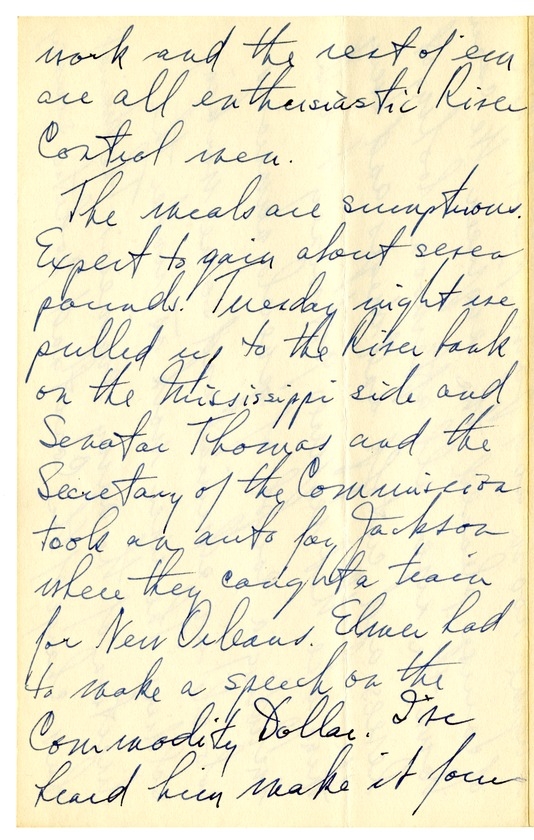 work and the rest of 'em
are all enthusiastic River
Control men.
The meals are sumptuous.
Expect to gain about seven
pounds. Tuesday night we
pulled up to the River bank
on the Mississippi side and
Senator Thomas and the
Secretary of the Commission
took an auto for Jackson
where they caught a train
for New Orleans. Elmer had
to make a speech on the
Commodity Dollar. I've
heard him make it four